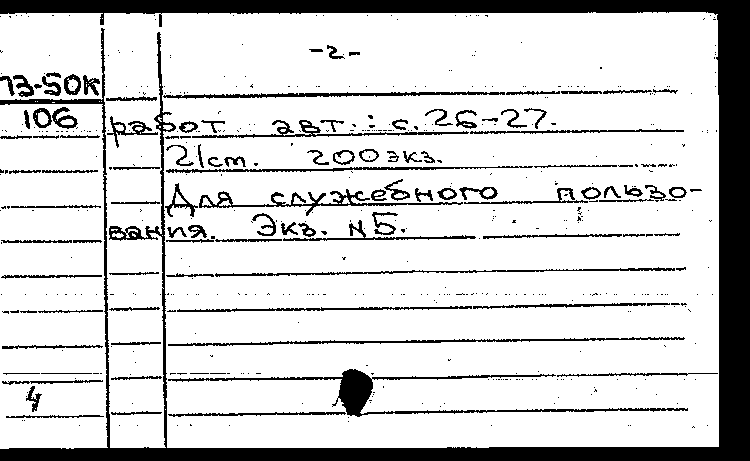 -2-
73-50к
106
работ авт.: с. 26-27.
21 ст. 200 экз.
Для служебного пользо-
вания. Экз. N 5.
4